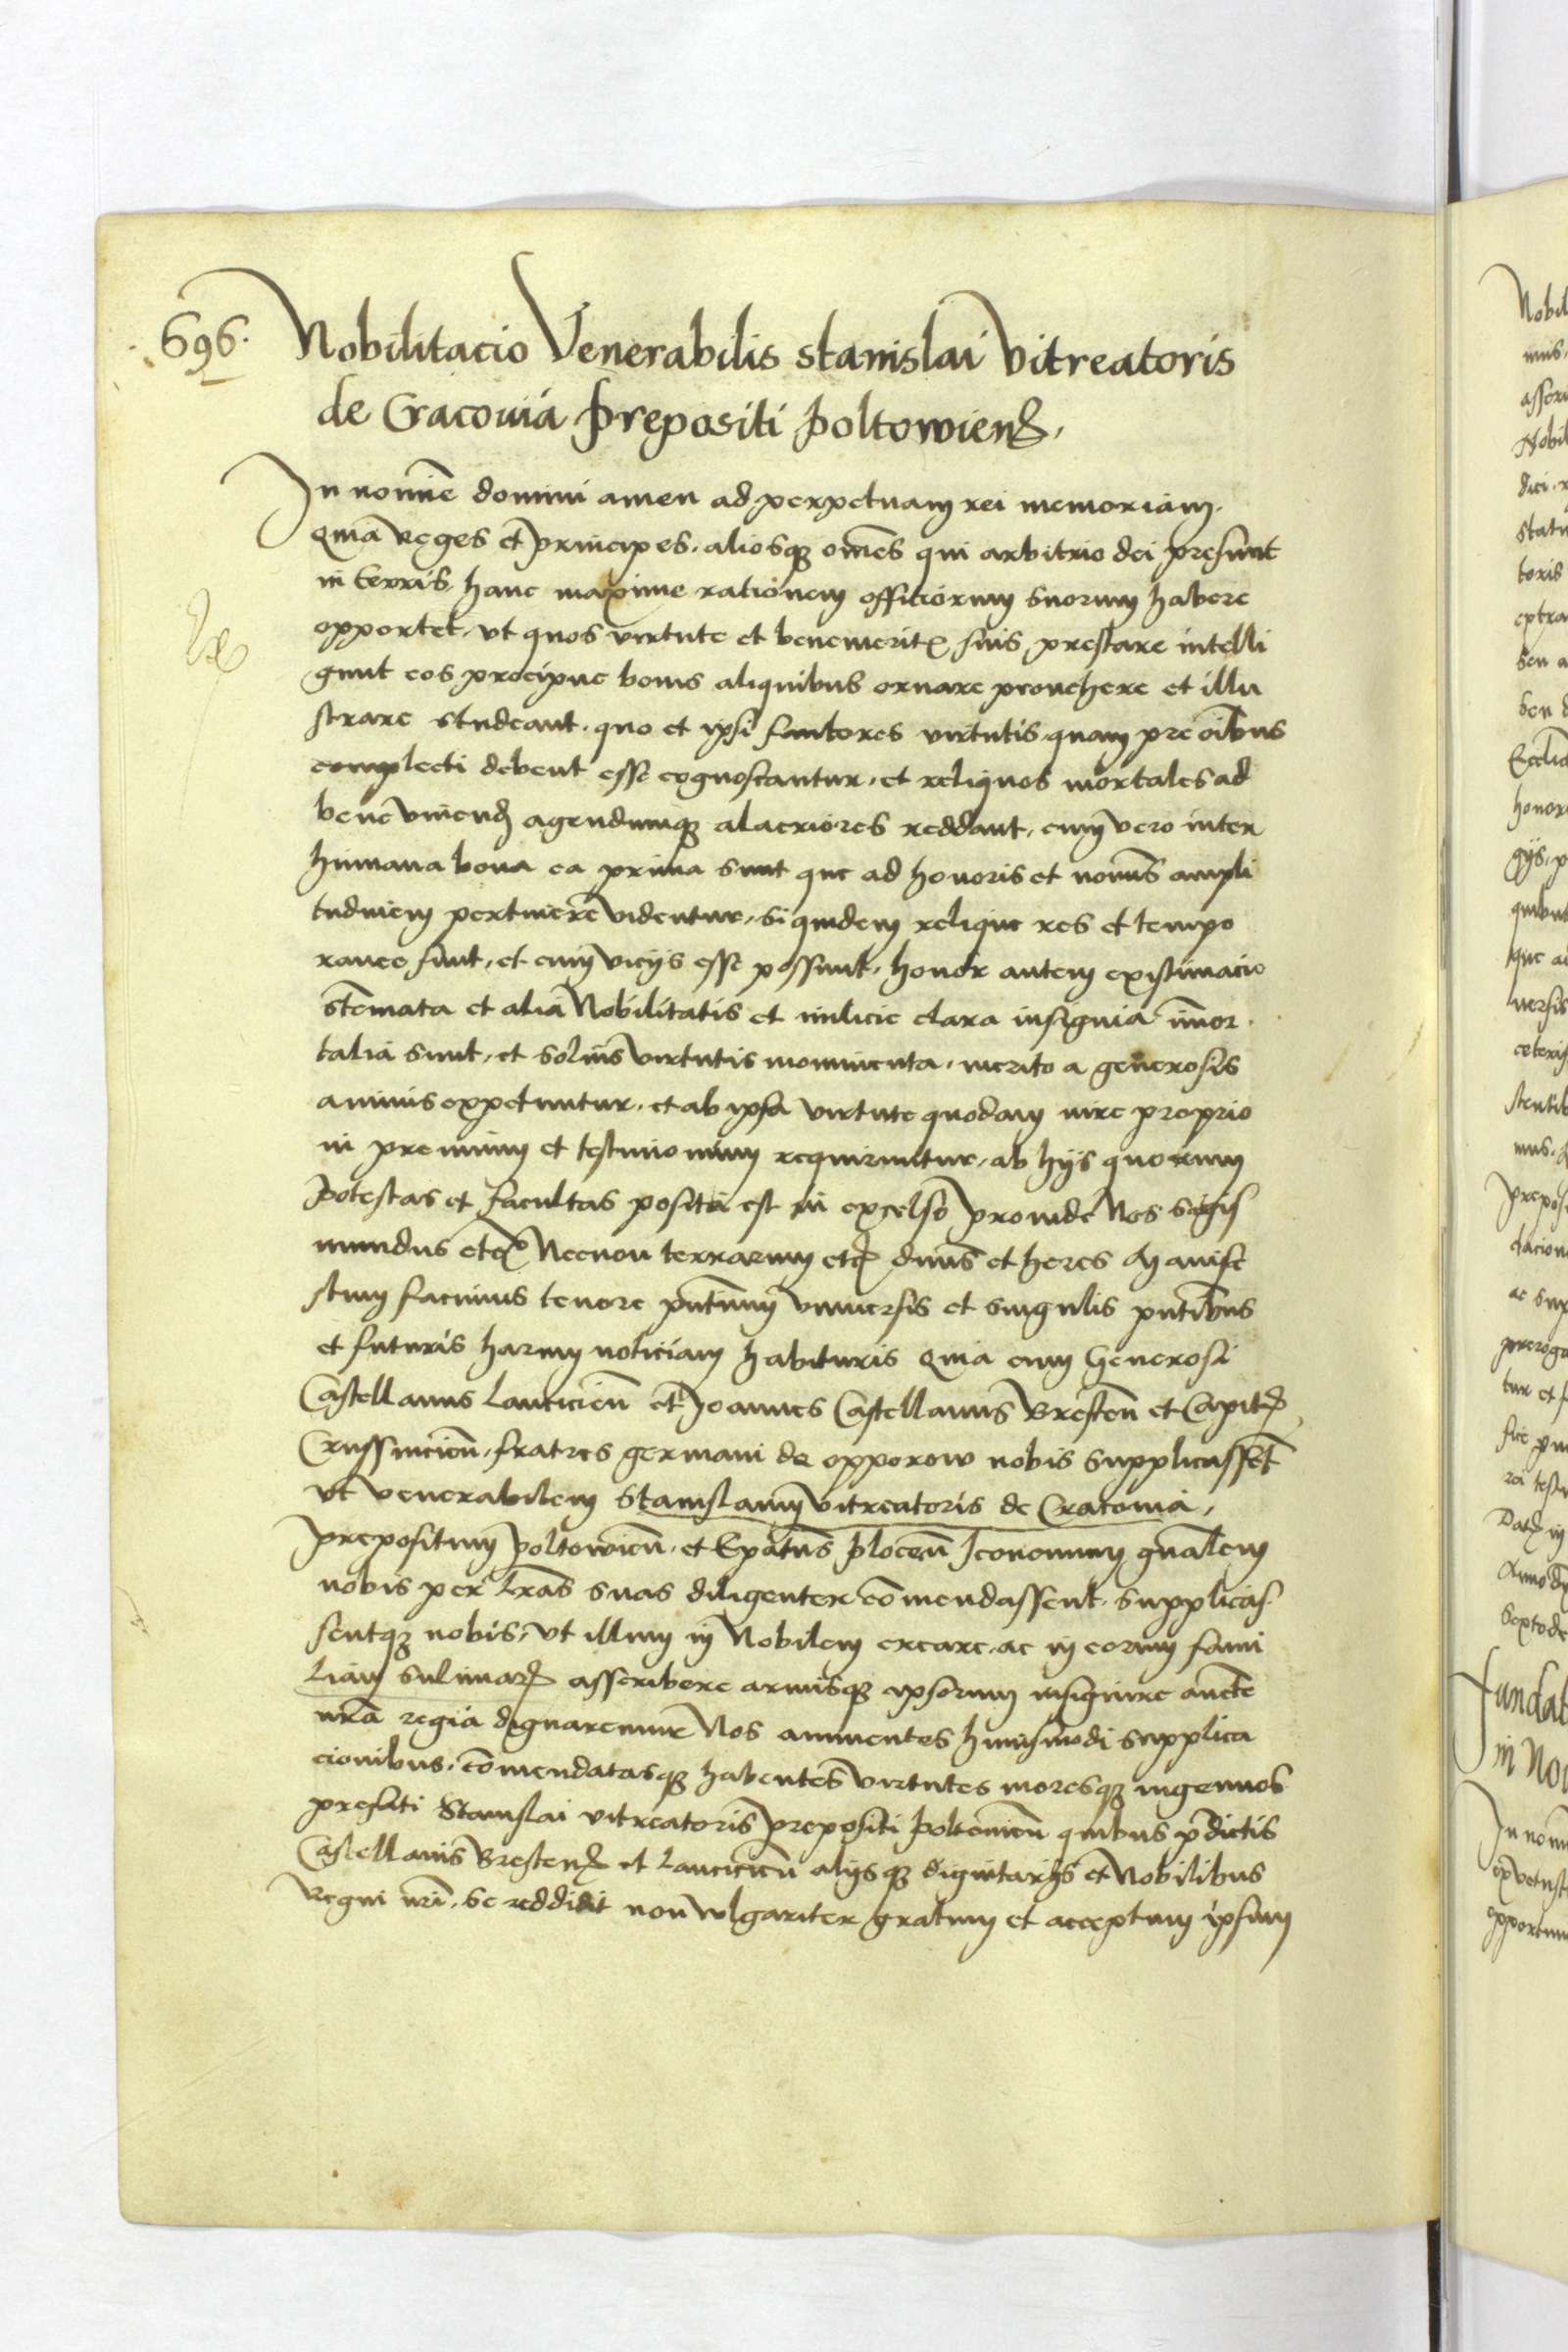 696. Nobilitacio Venerabilis stanislai Vitreatoris
de Cracouia prepositi poltowieñ,
In nomine domini amen ad perpetuam rei memoriam.
Quia Reges et principes. aliosqȝ om̃es qui arbitrio dei presunt
in terris hanc maxime rationem officiorum suorum habere
opportet. vt quos virtute et benemeritꝭ suis prestare intelli
gunt eos precipue bonis aliquibus ornare prouehere et illu
strare studeant. quo et ipsi fautores virtutis quam pre oĩbus
complecti debent esse cognoscantur. et reliquos mortales ad
bene viuendũ agendumqȝ alacriores reddant. cum vero inter
humana bona ea prima sunt que ad honoris et nomĩs ampli
tudinem pertinere videntur. Si quidem relique res et tempo
ranee sunt. et cum vicijs esse possunt. honor autem existimacio
stemata et alia Nobilitatis et milicie clara insignia im̃or.
talia sunt. et solius virtutis monimenta. merito a generosis
animis expetuntur. et ab ipsa virtute quodam iure proprio
in premium et testimonium requiruntur. ab hijs quorum
potestas et facultas posita est in excelso proinde Nos Sigis
mundus etcꝭ Necnon terrarum etcꝭ dñus et heres Manife
stum facimus tenore pñtium vniuersis et singulis pñtibus
et futuris harum noticiam habituris Quia cum Generosi
Castellanus Lancicieñ et Joannes Castellanus Bresteñ et Capitꝭ
Crussuicieñ. fratres germani de opporow nobis supplicasset̃
vt venerabilem Stanislaum vitreatoris de Cracouia,
prepositum poltowieñ. et Ep̃atus plocen̄ Iconomum gñalem
nobis per l̃ras suas diligenter com̃endassent. supplicas
sentqȝ nobis. vt illum in Nobilem creare. ac in eorum fami
liam sulimarꝭ asscribere armisqȝ ipsorum insignire aucte
nrã regia dignaremur Nos annuentes huiusmodi supplica
cionibus. com̃endatasqȝ habentes virtutes moresqȝ ingenuos
prefati Stanislai vitreatoris prepositi poltouieñ quibus p̃dictis
Castellanis Brestenꝭ et Lancicieñ alijsqȝ dignitarijs et Nobilibus
Regni nr̃i. se reddidit non wlgariter gratum et acceptum ipsum